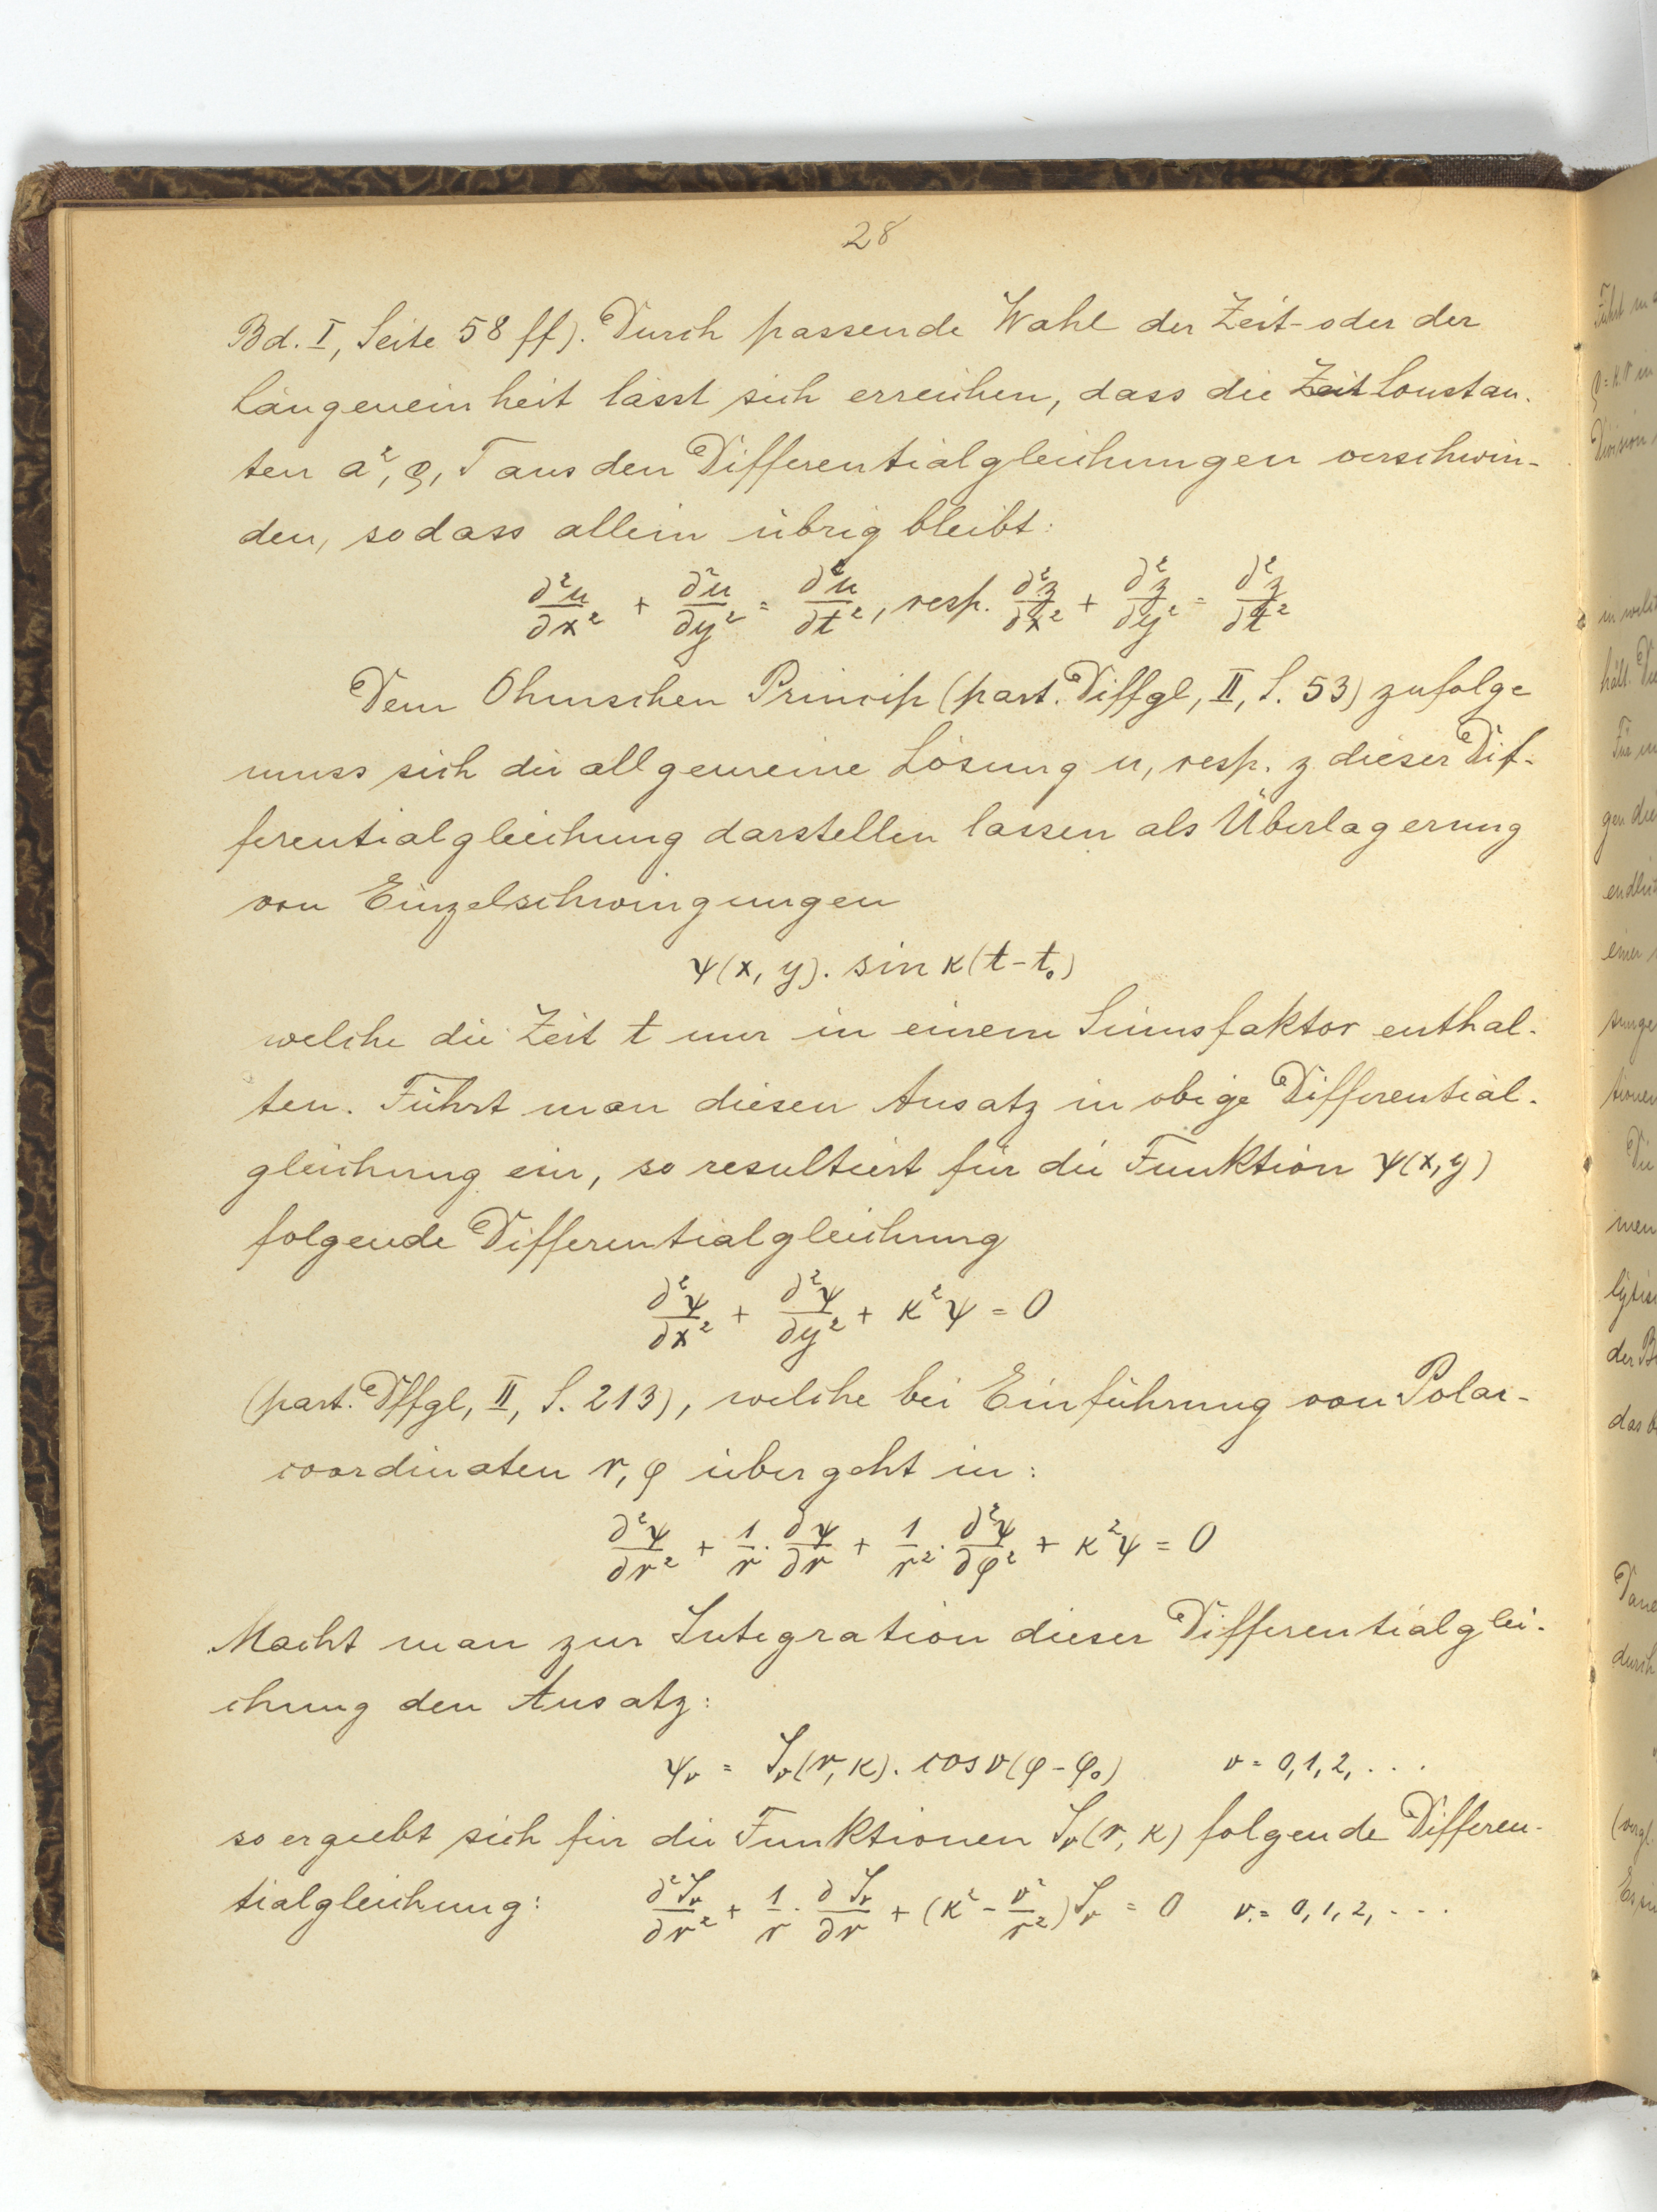 28
Bd. I, Seite 58 ff). Durch passende Wahl der Zeit- oder der
Längeneinheit lässt sich erreichen, dass die Zeitconstan-
ten a², ϱ, T aus den Differentialgleichungen verschwin-
den, sodass allein übrig bleibt:
∂²u/∂x² + ∂²u/∂y² = ∂²u/∂t², resp. ∂²z/∂x² + ∂²z/∂y² = ∂²z/∂t²
Dem Ohmschen Princip (part. Diffgl, II, S. 53) zufolge
muss sich die allgemeine Lösung u, resp. z dieser Dif-
ferentialgleichung darstellen lassen als Überlagerung
von Einzelschwingungen
ψ(x, y). sin κ(t - t₀)
welche die Zeit t nur in einem Sinusfaktor enthal-
ten. Führt man diesen Ansatz in obige Differential-
gleichung ein, so resultiert für die Funktion ψ(x, y)
folgende Differentialgleichung
∂²ψ/∂x² + ∂²ψ/∂y² + κ²ψ = 0
(part. Dffgl, II, S. 213), welche bei Einführung von Polar-
coordinaten r, φ übergeht in:
∂²ψ/∂r² + 1/r · ∂ψ/∂r + 1/r² · ∂²ψ/∂φ² + κ²ψ = 0
Macht man zur Integration dieser Differentialglei-
chung den Ansatz:
ψᵥ = Jᵥ(r, κ). cos ν(φ - φ₀) ν = 0, 1, 2, . . .
so ergiebt sich für die Funktionen Jᵥ(r, κ) folgende Differen-
tialgleichung: ∂²Jᵥ/∂r² + 1/r · ∂Jᵥ/∂r + (κ² - ν²/r²)Jᵥ = 0 ν = 0, 1, 2, . . .